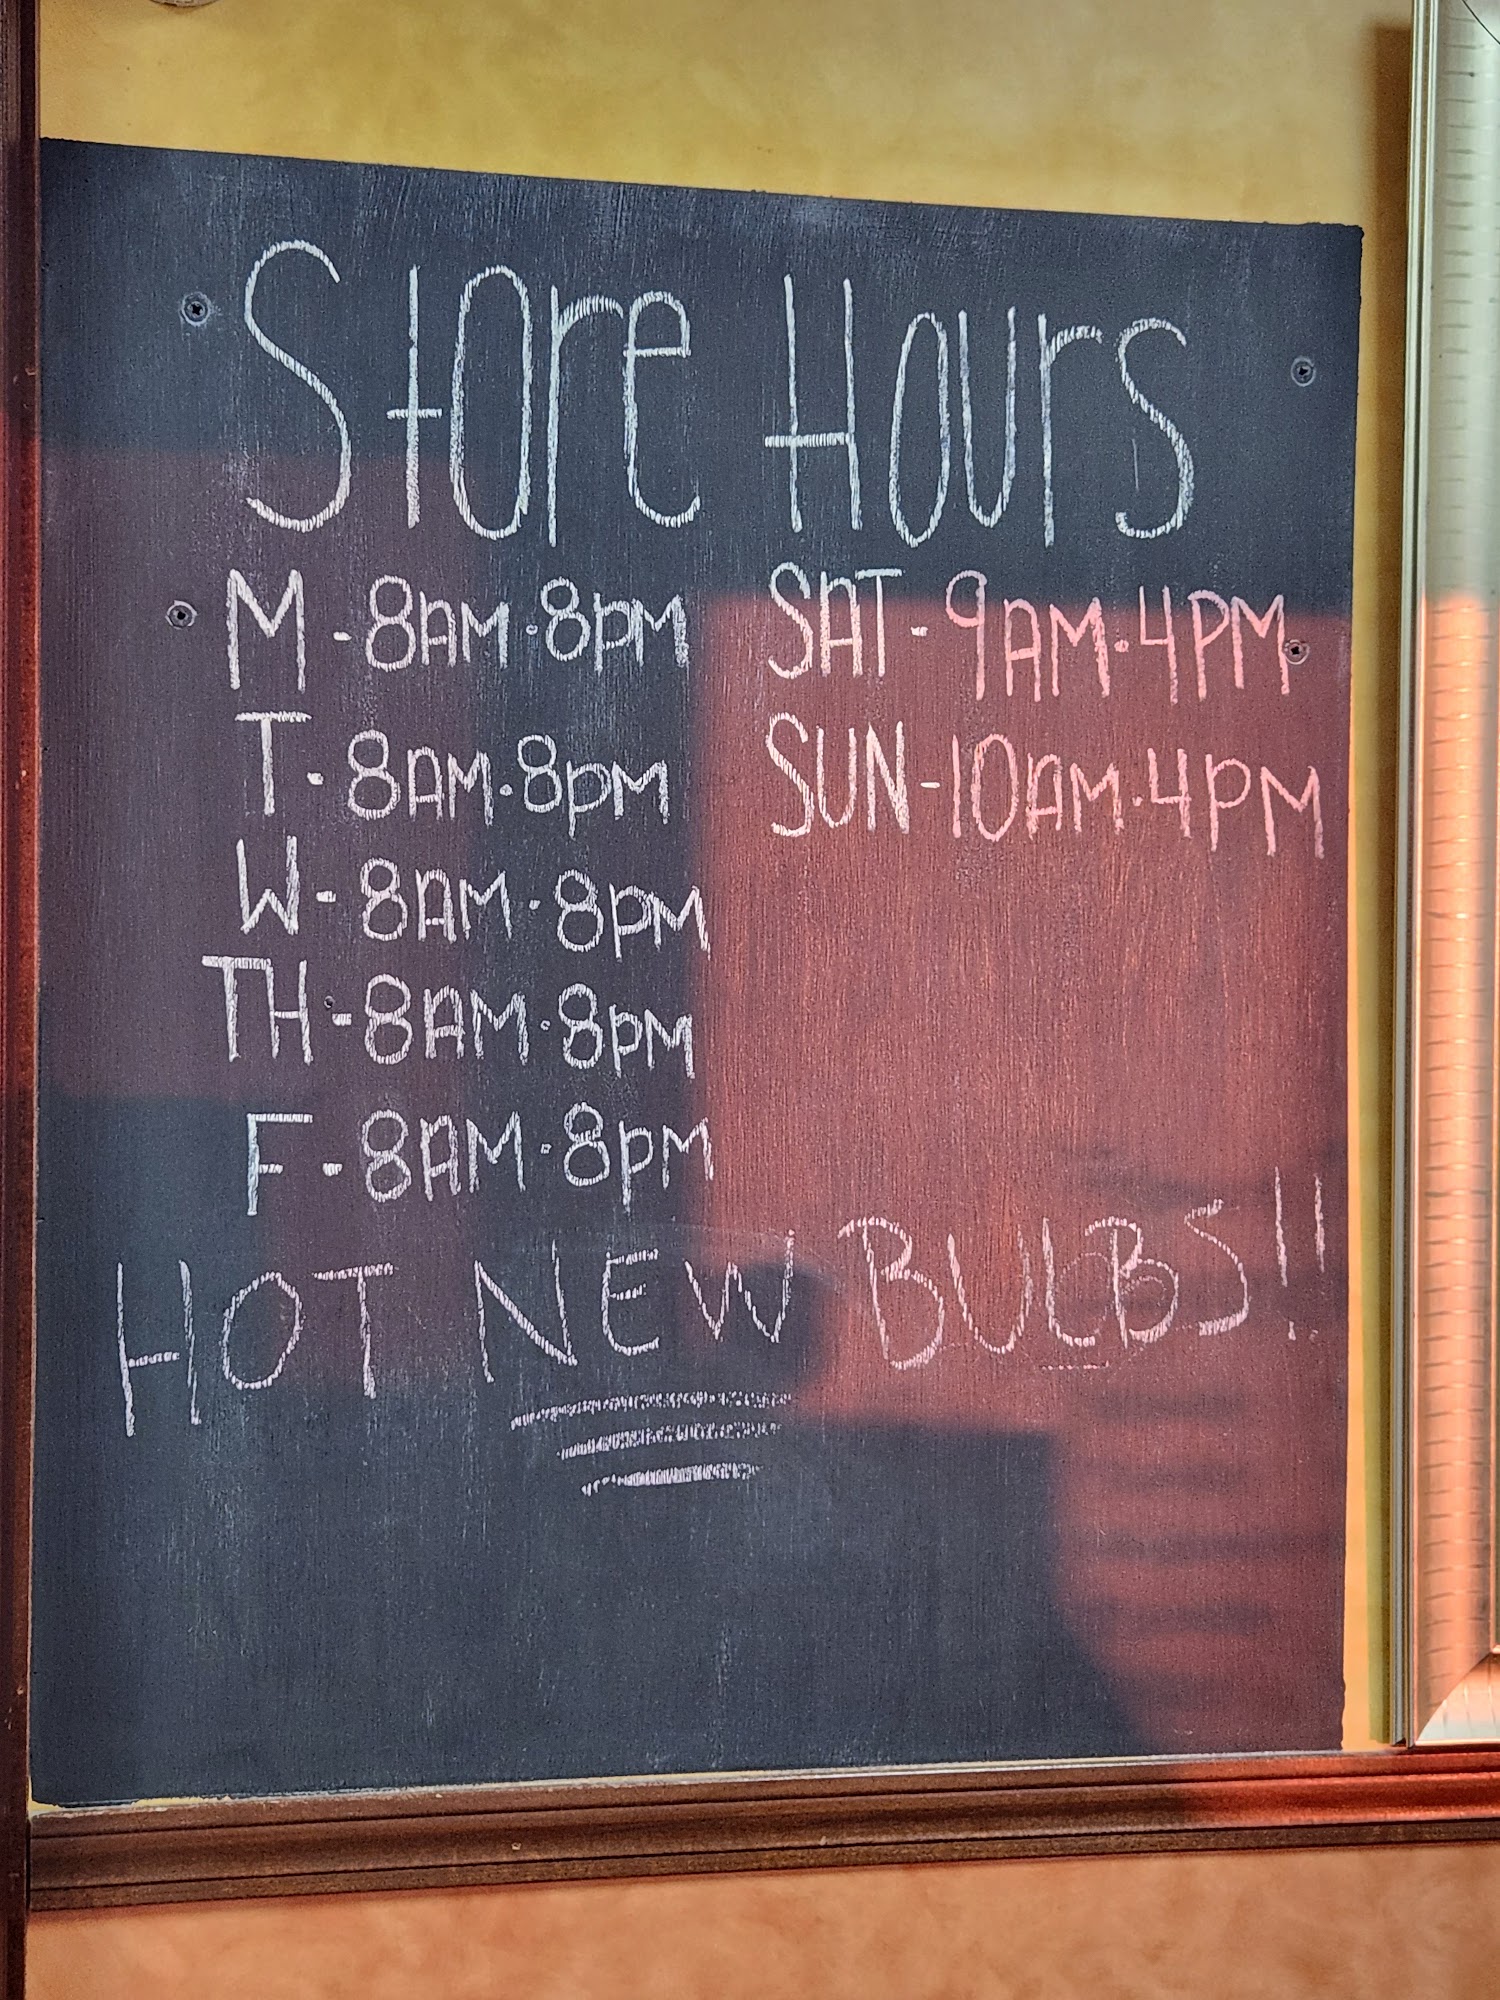 Store Hours
M - 8AM · 8PM
T - 8AM · 8PM
W - 8AM · 8PM
TH - 8AM · 8PM
F - 8AM · 8PM
SAT - 9AM · 4PM
SUN - 10AM · 4PM
HOT NEW BULBS!!